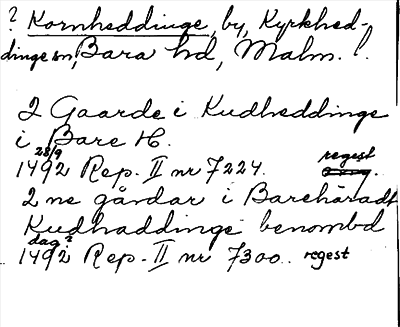 ? Kornheddinge, by, Kyrkhed-
dinge sn, Bara hd, Malm. l.
2 Gaarde i Kudheddinge
i Bare H.
28/9
1492 Rep. II nr 7224. regest
2 ne gårdar i Barehäradt
Kudhaddinge benombd
dag?
1492 Rep. II nr 7300. regest